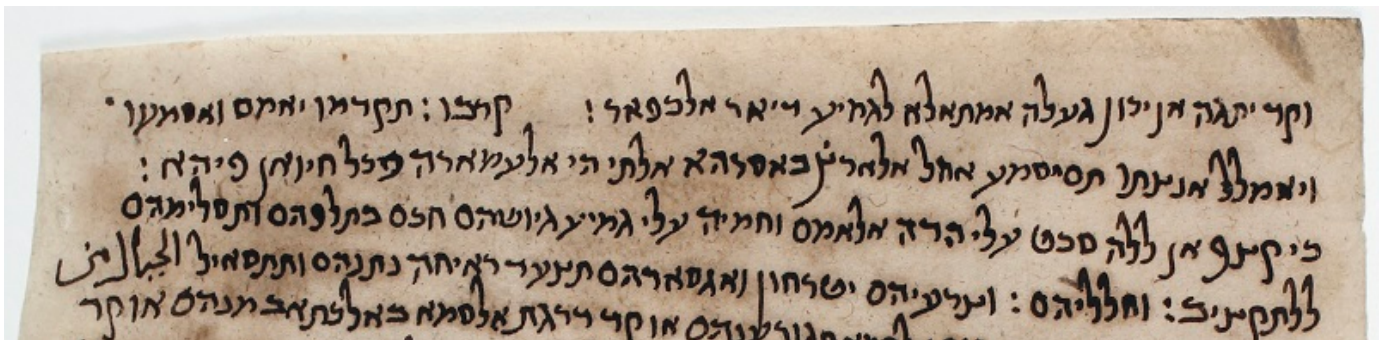 וקד יתגה אן יכון געלה אמתאלא לגמיע דיאר אלכפאר : קרבו : תקדמו יאמם ואסמעו
ויאמלל אנצתו תם יסמע אהל אלארץ באסרהא אלתי הי אלעמארה וכל חיואן פיהא :
כי קצף אן ללה סכט עלי הדה אלאמם וחמיה עלי גמיע גיושהם חכם בתלפהם ותסלימהם
ללתקציב : וחלליהם : וצרעיהם יטרחון ואגסאדהם תצעד ראיחה נתנהם ותתסאיל الجبال من
או קד דרגת אלסמא כאלכתאב מנהם או קד